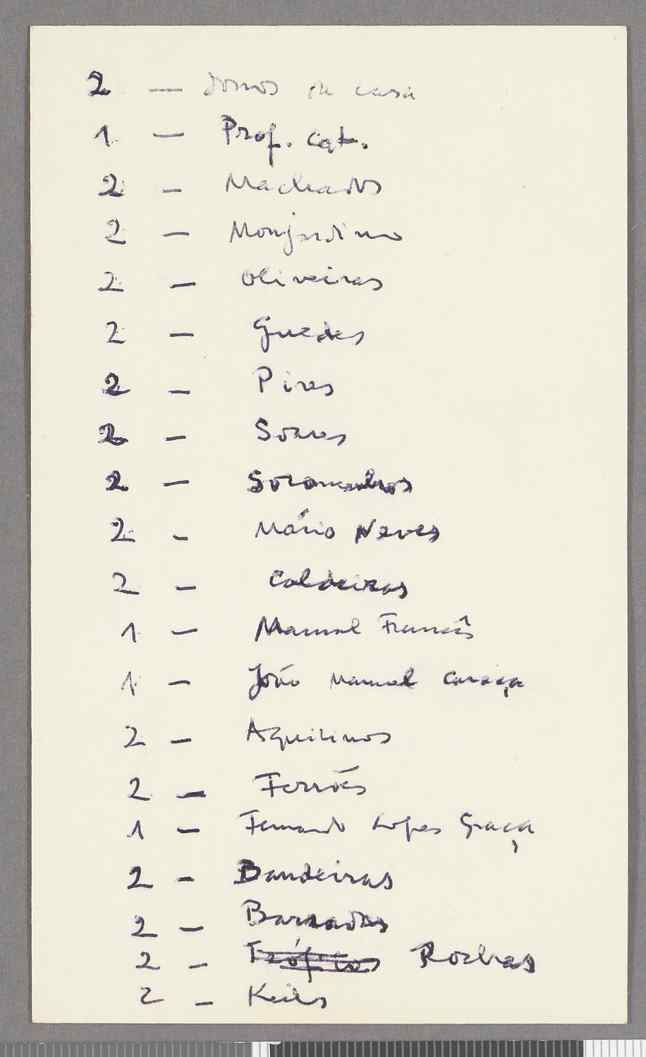 2 — Donos da casa
1 — Prof. Cat.
2 — Machados
2 — Monjardino
2 — Oliveiras
2 — Guedes
2 — Pires
2 — Soares
2 —
2 — Mário Neves
2 — Caldeiras
1 — Manuel Francês
1 — João Manuel Caraça
2 — Aquilinos
2 — Ferrões
1 — Fernando Lopes Graça
2 — Bandeiras
2 — Barradas
2 — Rochas
2 — Keils